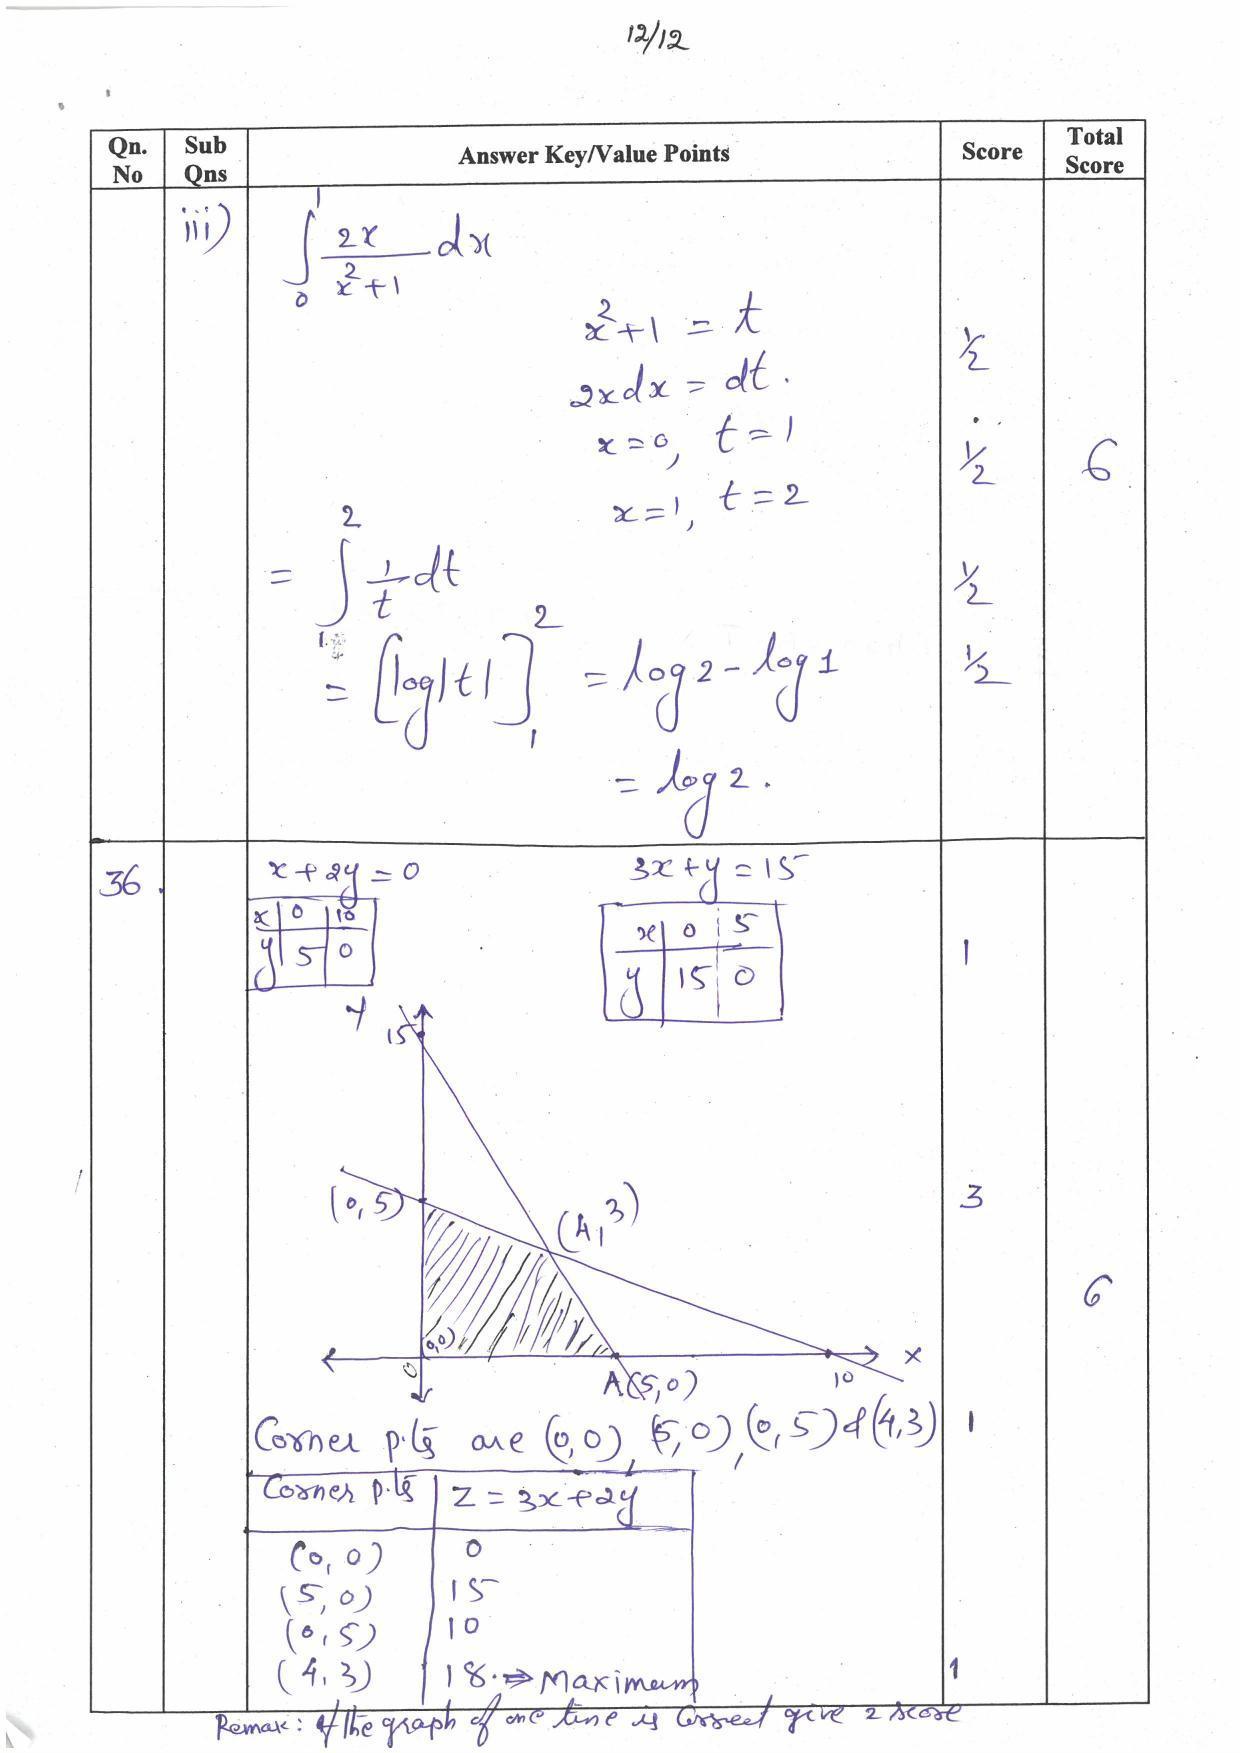 12/12
Qn. No | Sub Qns | Answer Key/Value Points | Score | Total Score
iii) ∫₀¹ 2x/(x²+1) dx
x²+1 = t
½
2xdx = dt.
x=0, t=1
½
6
x=1, t=2
= ∫₁² 1/t dt
½
= [log|t|]₁² = log2 - log1
½
= log2.
36.
x+2y=0
3x+y=15
x | 0 | 10
y | 5 | 0
x | 0 | 5
y | 15 | 0
1
Y
15
(0,5)
(4,3)
3
6
(0,0)
0
A(5,0)
10
X
Corner p.ts are (0,0), (5,0), (0,5) & (4,3)
1
Corner p.ts | Z = 3x+2y
(0,0) | 0
(5,0) | 15
(0,5) | 10
(4,3) | 18. ⇒ Maximum
1
Remak: If the graph of one line is Correct give 2 score